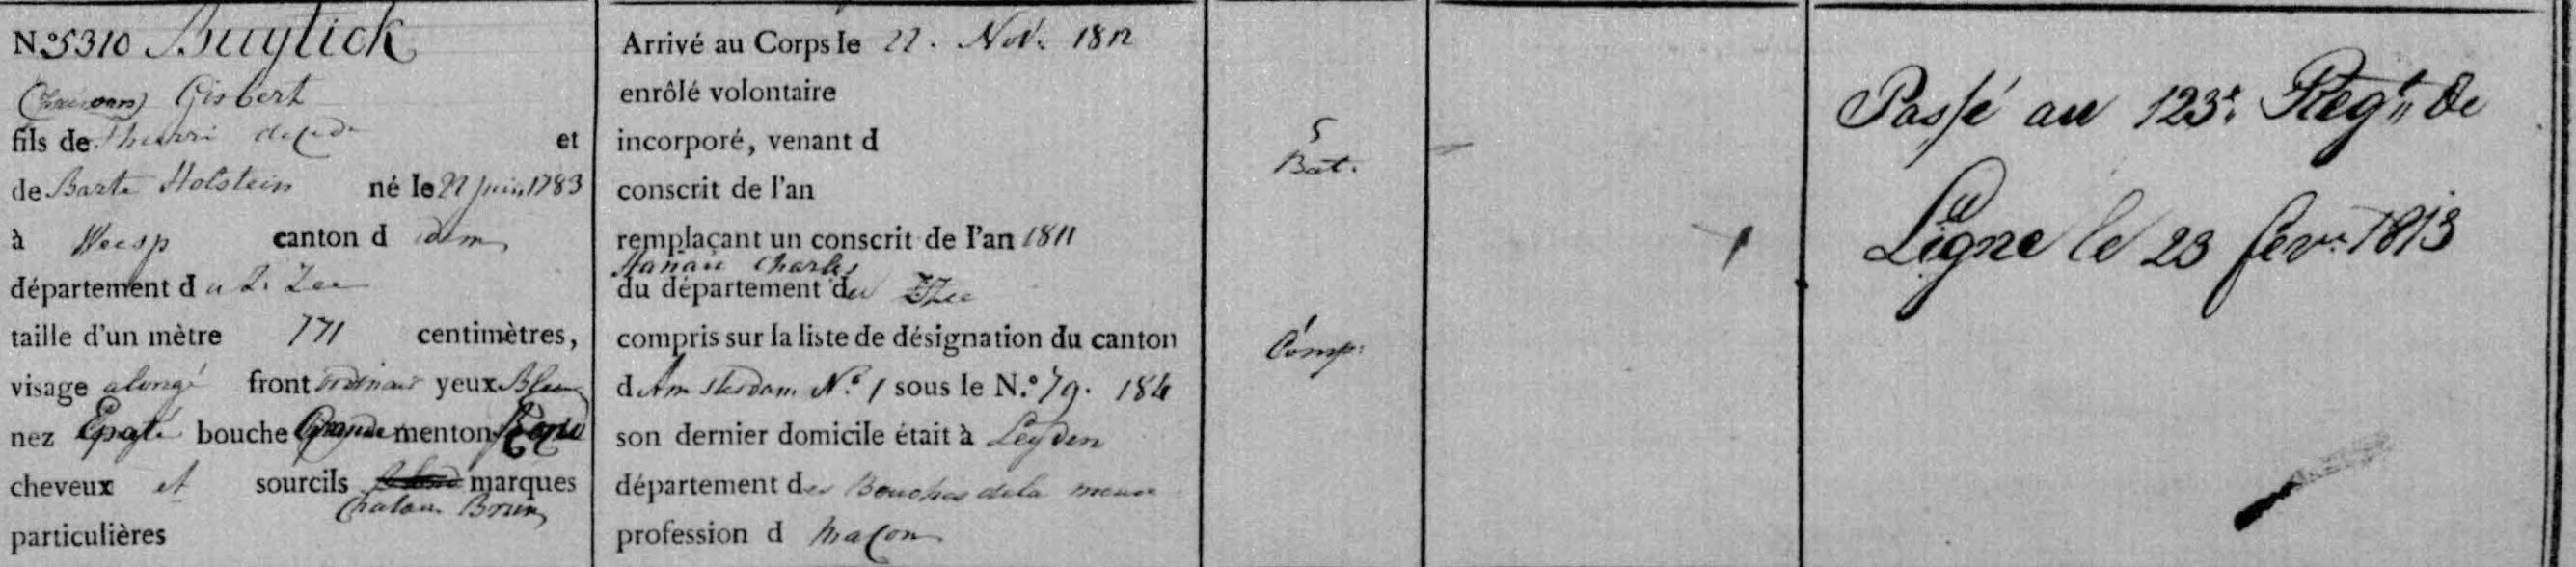 N.° 5310 Buytick
Gisbert
fils de Thierri et
de Barte Holstein né le 22 juin 1783
à Weesp canton d idem
département du Z. Zee
taille d'un mètre 771 centimètres,
visage alongé front ordinair yeux Bleus
nez Epaté bouche Grande menton Rond
cheveux et sourcils marques
Chatau Brun
particulières
Arrivé au Corps le 22. Nov. 1812
enrôlé volontaire
incorporé, venant d
conscrit de l'an
remplaçant un conscrit de l'an 1811
Charles
du département du Zzee
compris sur la liste de désignation du canton
d Amsterdam N.° 1 sous le N.° 79. 1811
son dernier domicile était à Leyden
département des Bouches de la meuse
profession d Maçon
5
Bat.
Comp:
Passé au 123.e Reg.t de
Ligne le 23 fevr. 1813